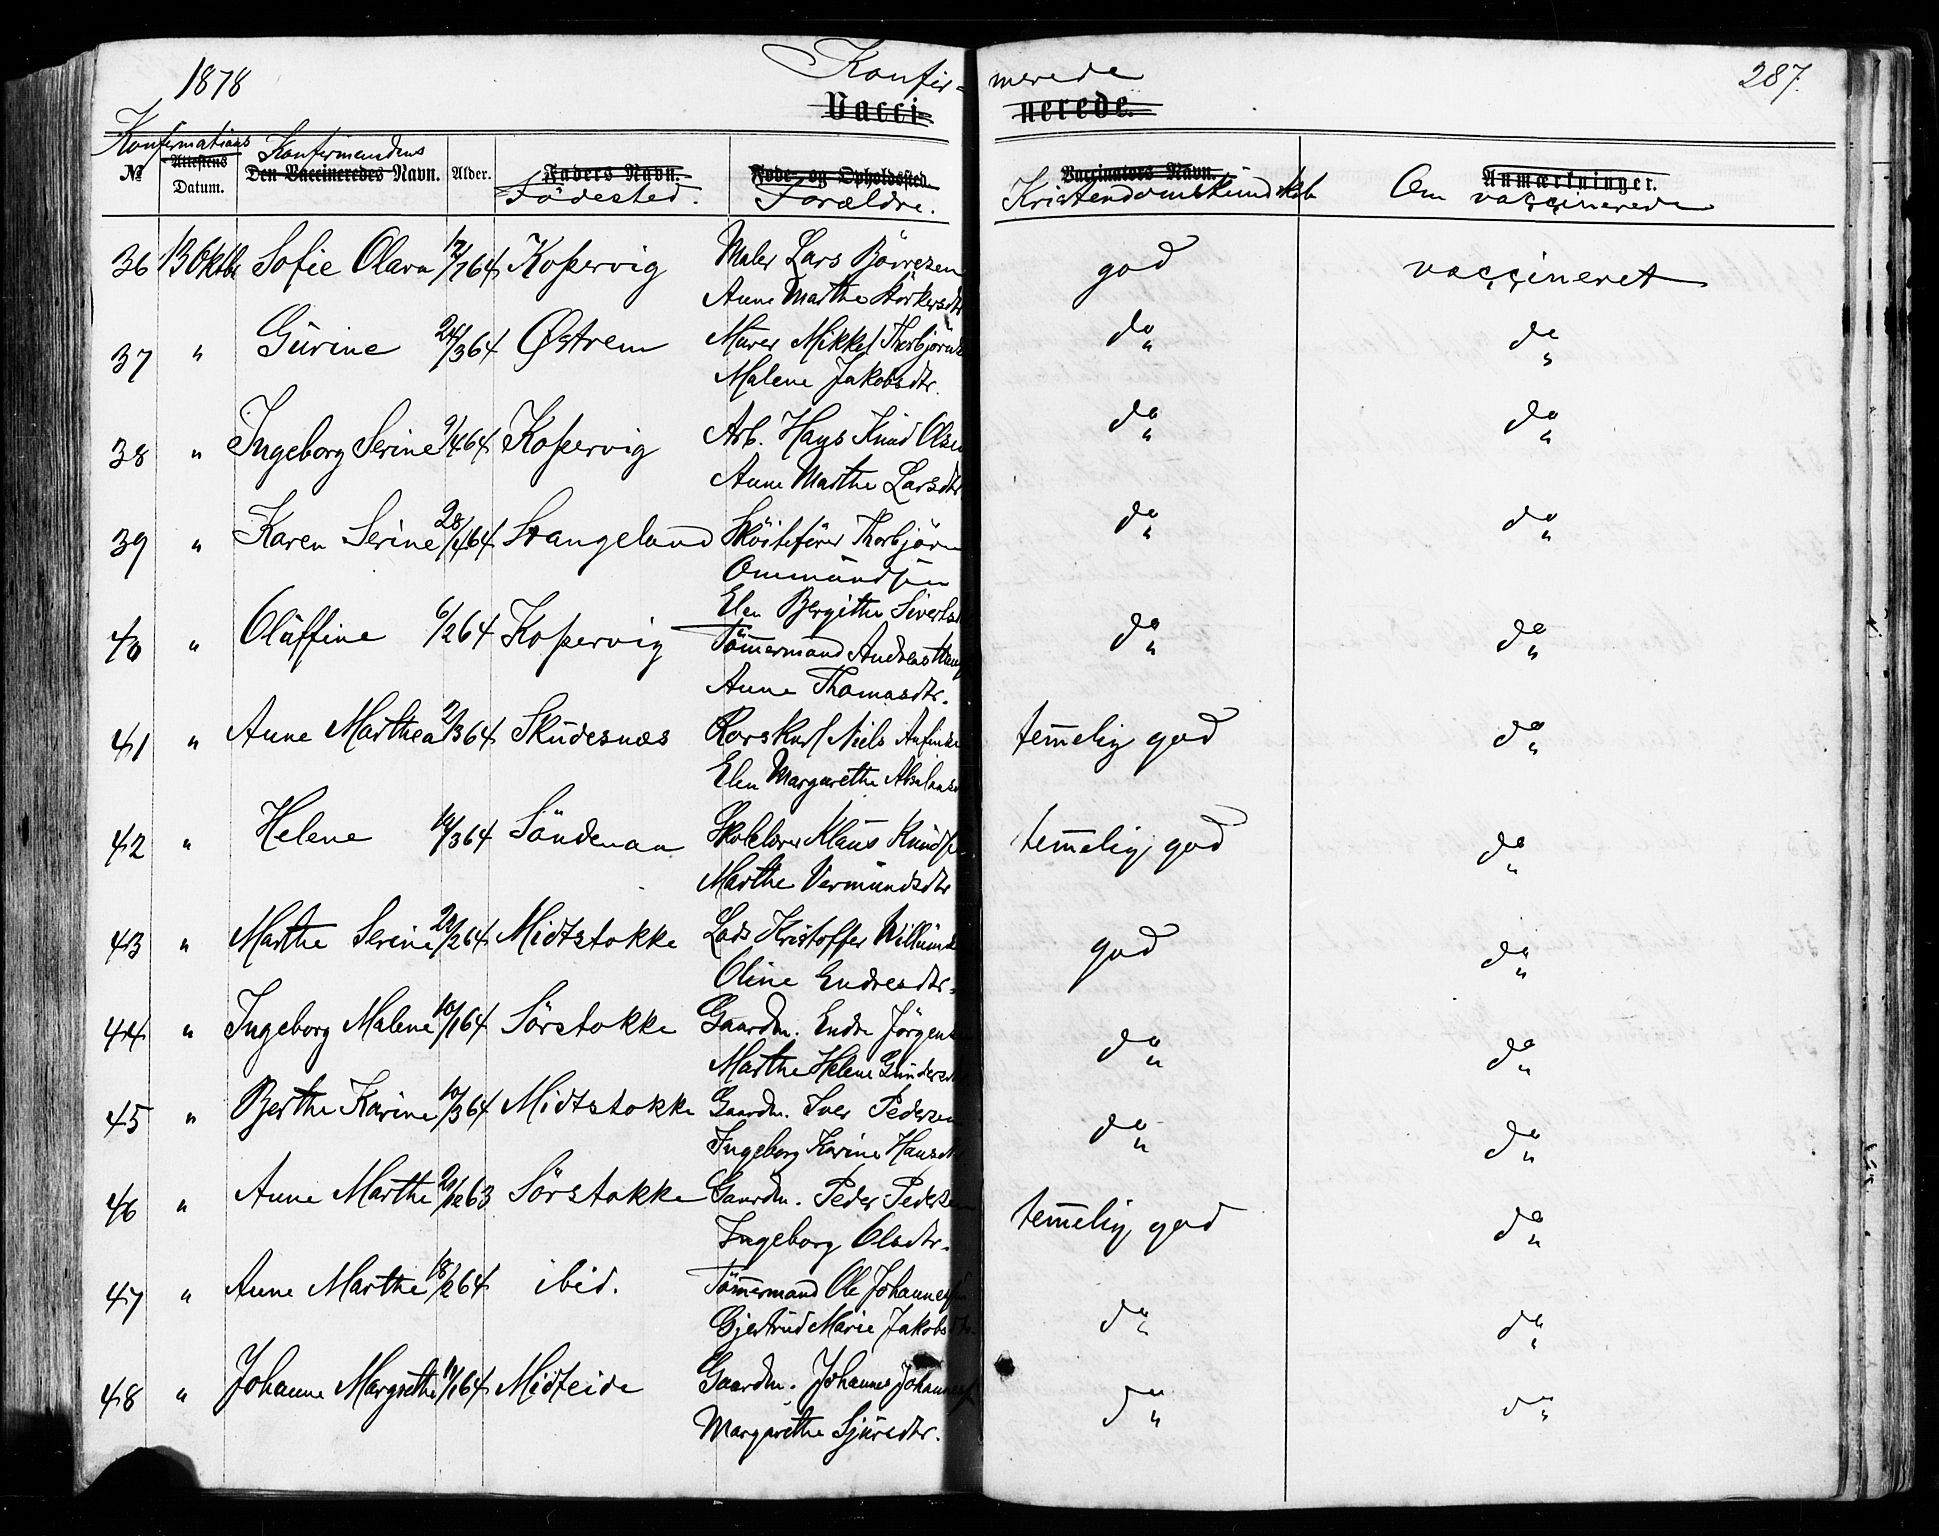 1878 Konfir= merede 287.
Vacci- nerede.
Konfirmations Konfirmandens
№ Attestens Datum. Den Vaccineredes Navn. Alder. Faders Navn. Føde- og Opholdssted. Vaccinators Navn. Anmærkninger.
Födested. Forældre. Kristendomskundskab Om vaccinerede
36 13 Oktbr Sofie Olava 12/1 64 Kopervig Maler Lars Börresen god vaccineret
Anne Marthe Störkersdtr
37 " Gurine 24/3 64 Østrem Murer Mikkel Thorbjörns do " do "
Malene Jakobsdtr.
38 " Ingeborg Serine 9/4 64 Kopervig Arb. Hans Knud Olsen do " do "
Anne Marthe Larsdtr
39 " Karen Serine 28/4 64 Stangeland Thorbjörn do " do "
Ommundsen
Elen Bergithe Siverts
40 " Oluffine 6/2 64 Kopervig Tömmermand Andreas do " do "
Anne Thomasdtr.
41 " Anne Marthea 2/3 64 Skudesnæs Rorskarl Niels temmelig god do "
Elen Margarethe
42 " Helene 14/3 64 Söndenaa Skolelærer Klaus Knuds temmelig god do "
Marthe Vermundsdtr
43 " Marthe Serine 20/2 64 Midtstokke Lods Kristoffer Willums god do "
Oline Endresdtr.
44 " Ingeborg Malene 10/1 64 Sörstokke Gaardm. Endre Jörgens do " do "
Marthe Helene Gunders
45 " Berthe Karine 10/3 64 Midtstokke Gaardm. Iver Pedersen do " do "
Ingeborg Karine Hansdtr
46 " Anne Marthe 20/12 63 Sörstokke Gaardm. Peder Pedersen temmelig god do "
Ingeborg Olsdtr.
47 " Anne Marthe 18/2 64 ibid. Tömmermand Ole Johannessen do " do "
Gjertrud Marie Jakobsdtr
48 " Johanne Margrethe 11/1 64 Midteide Gaardm. Johannes Johannes do " do "
Margarethe Sjursdtr.